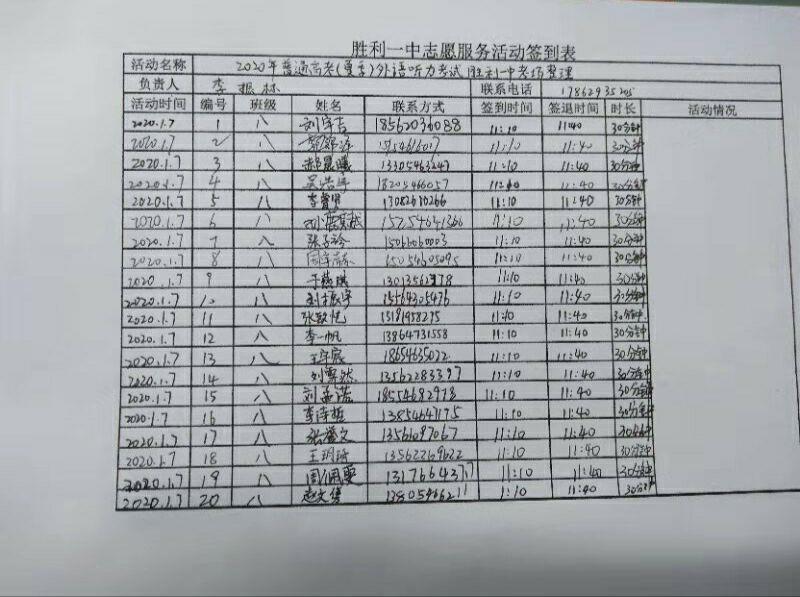 胜利一中志愿服务活动签到表
活动名称 2020年普通高考(夏季)外语听力考试胜利一中考场整理
负责人 李振林 联系电话 17862935
活动时间 编号 班级 姓名 联系方式 签到时间 签退时间 时长 活动情况
2020.1.7 1 八 刘宇吉 18562036088 11:10 11:40 30分钟
2020.1.7 2 八 11:10 11:40 30分钟
2020.1.7 3 八 郝晨曦 13305463247 11:10 11:40 30分钟
2020.1.7 4 八 吴浩宇 18205466057 11:10 11:40 30分钟
2020.1.7 5 八 11:10 11:40 30分钟
2020.1.7 6 八 15254641366 11:10 11:40 30分钟
2020.1.7 7 八 张子玲 11:10 11:40 30分钟
2020.1.7 8 八 15054605095 11:10 11:40 30分钟
2020.1.7 9 八 11:10 11:40 30分钟
2020.1.7 10 八 刘振宇 15464305476 11:10 11:40 30分钟
2020.1.7 11 八 张致恺 15181958275 11:10 11:40 30分钟
2020.1.7 12 八 李一帆 13864731558 11:10 11:40 30分钟
2020.1.7 13 八 王宇宸 18654635022 11:10 11:40 30分钟
2020.1.7 14 八 刘霁然 13562283397 11:10 11:40 30分钟
2020.1.7 15 八 刘孟诺 18554682978 11:10 11:40 30分钟
2020.1.7 16 八 李诗哲 13854641175 11:10 11:40 30分钟
2020.1.7 17 八 张馨文 13561097067 11:10 11:40 30分钟
2020.1.7 18 八 王玥琦 13562269622 11:10 11:40 30分钟
2020.1.7 19 八 周佩雯 11:10 11:40 30分钟
2020.1.7 20 八 赵文倩 11:10 11:40 30分钟